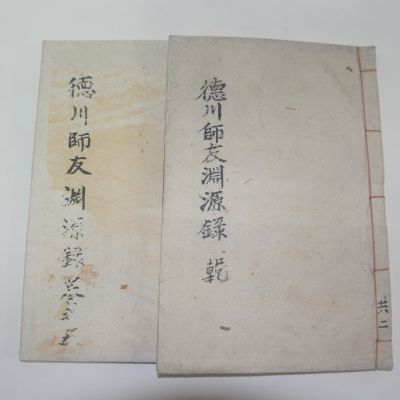 德川師友淵源錄
德川師友淵源錄 乾
共二